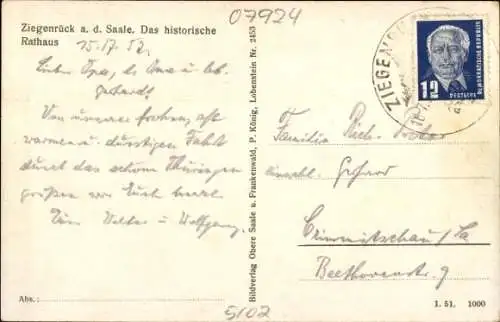 07924
Ziegenrück a. d. Saale. Das historische
Rathaus
15.17.52.
Lieber Opa, lb. Oma u. lb.
Gerhard!
Von unserer frohen, oft
warmen u. durstigen Fahrt
durch das schöne Thüringen
grüßen wir Euch herzl.
Walter u. Wolfgang.
Familie Rich.
einschl. Gerhard
Crimmitschau/Sa
Beethovenstr. 9
ZIEGENRÜCK
12
DEUTSCHE
DEMOKRATISCHE REPUBLIK
Bildverlag Obere Saale u. Frankenwald, P. König, Lobenstein Nr. 2453
Abs.:
5102
1. 51. 1000